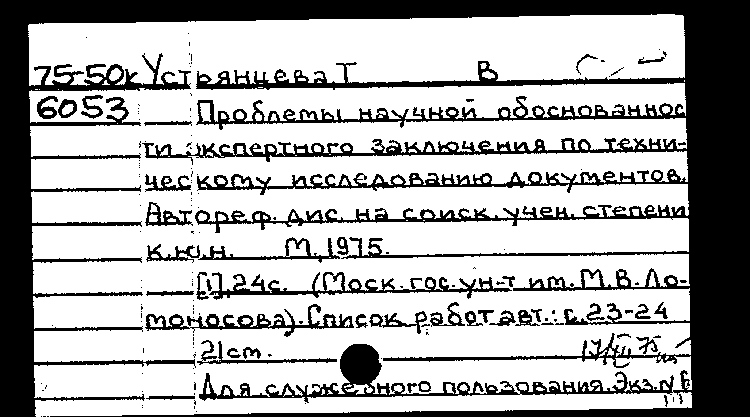 75-50к Устьянцева, Т В
6053 Проблемы научной обоснованнос
ти экспертного заключения по техни-
ческому исследованию документов.
Автореф. дис. на соиск. учен. степени
к.ю.н. М, 1975.
[1], 24с. (Моск. гос. ун-т им. М.В. Ло-
моносова). Список работ авт.: с. 23-24
21 см. 17/XII 75
Для служебного пользования. Экз. №